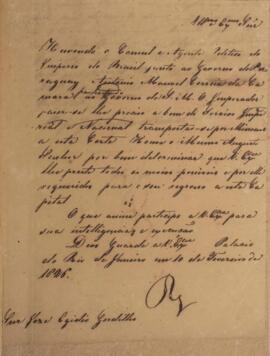 Illmo. Exmo. Snr.
Havendo o Consul e Agente Politico do
Imperio do Brasil junto ao Governo do Pa-
raguay Antonio Manoel Correa da Ca-
mara o Governo de S. M. O Imperador
fazer-se lhe preciso a bem do Servico Impe-
rial e Nacional transportar-se
a esta Corte O mesmo Augusto
Senhor por bem determinar que V. Exa.
lhe preste todos os meios precisos e por elle
requeridos para o seu regresso a esta Ca-
pital
O que assim participo a V. Exa. para
sua intelligencia e execução
Deos Guarde a V. Exa. Palacio
do Rio de Janeiro em 10 de Fevereiro de
1826.
Snr. José Egidio Gordilho